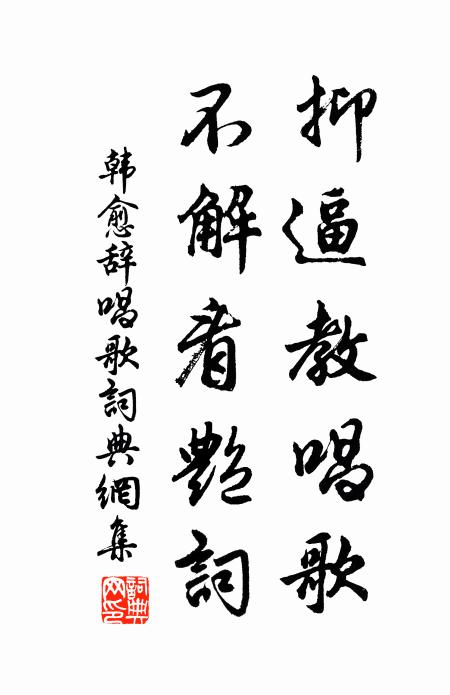 抑逼教唱歌
不解看艷詞
韩愈辞唱歌詞典網集
詞典網印